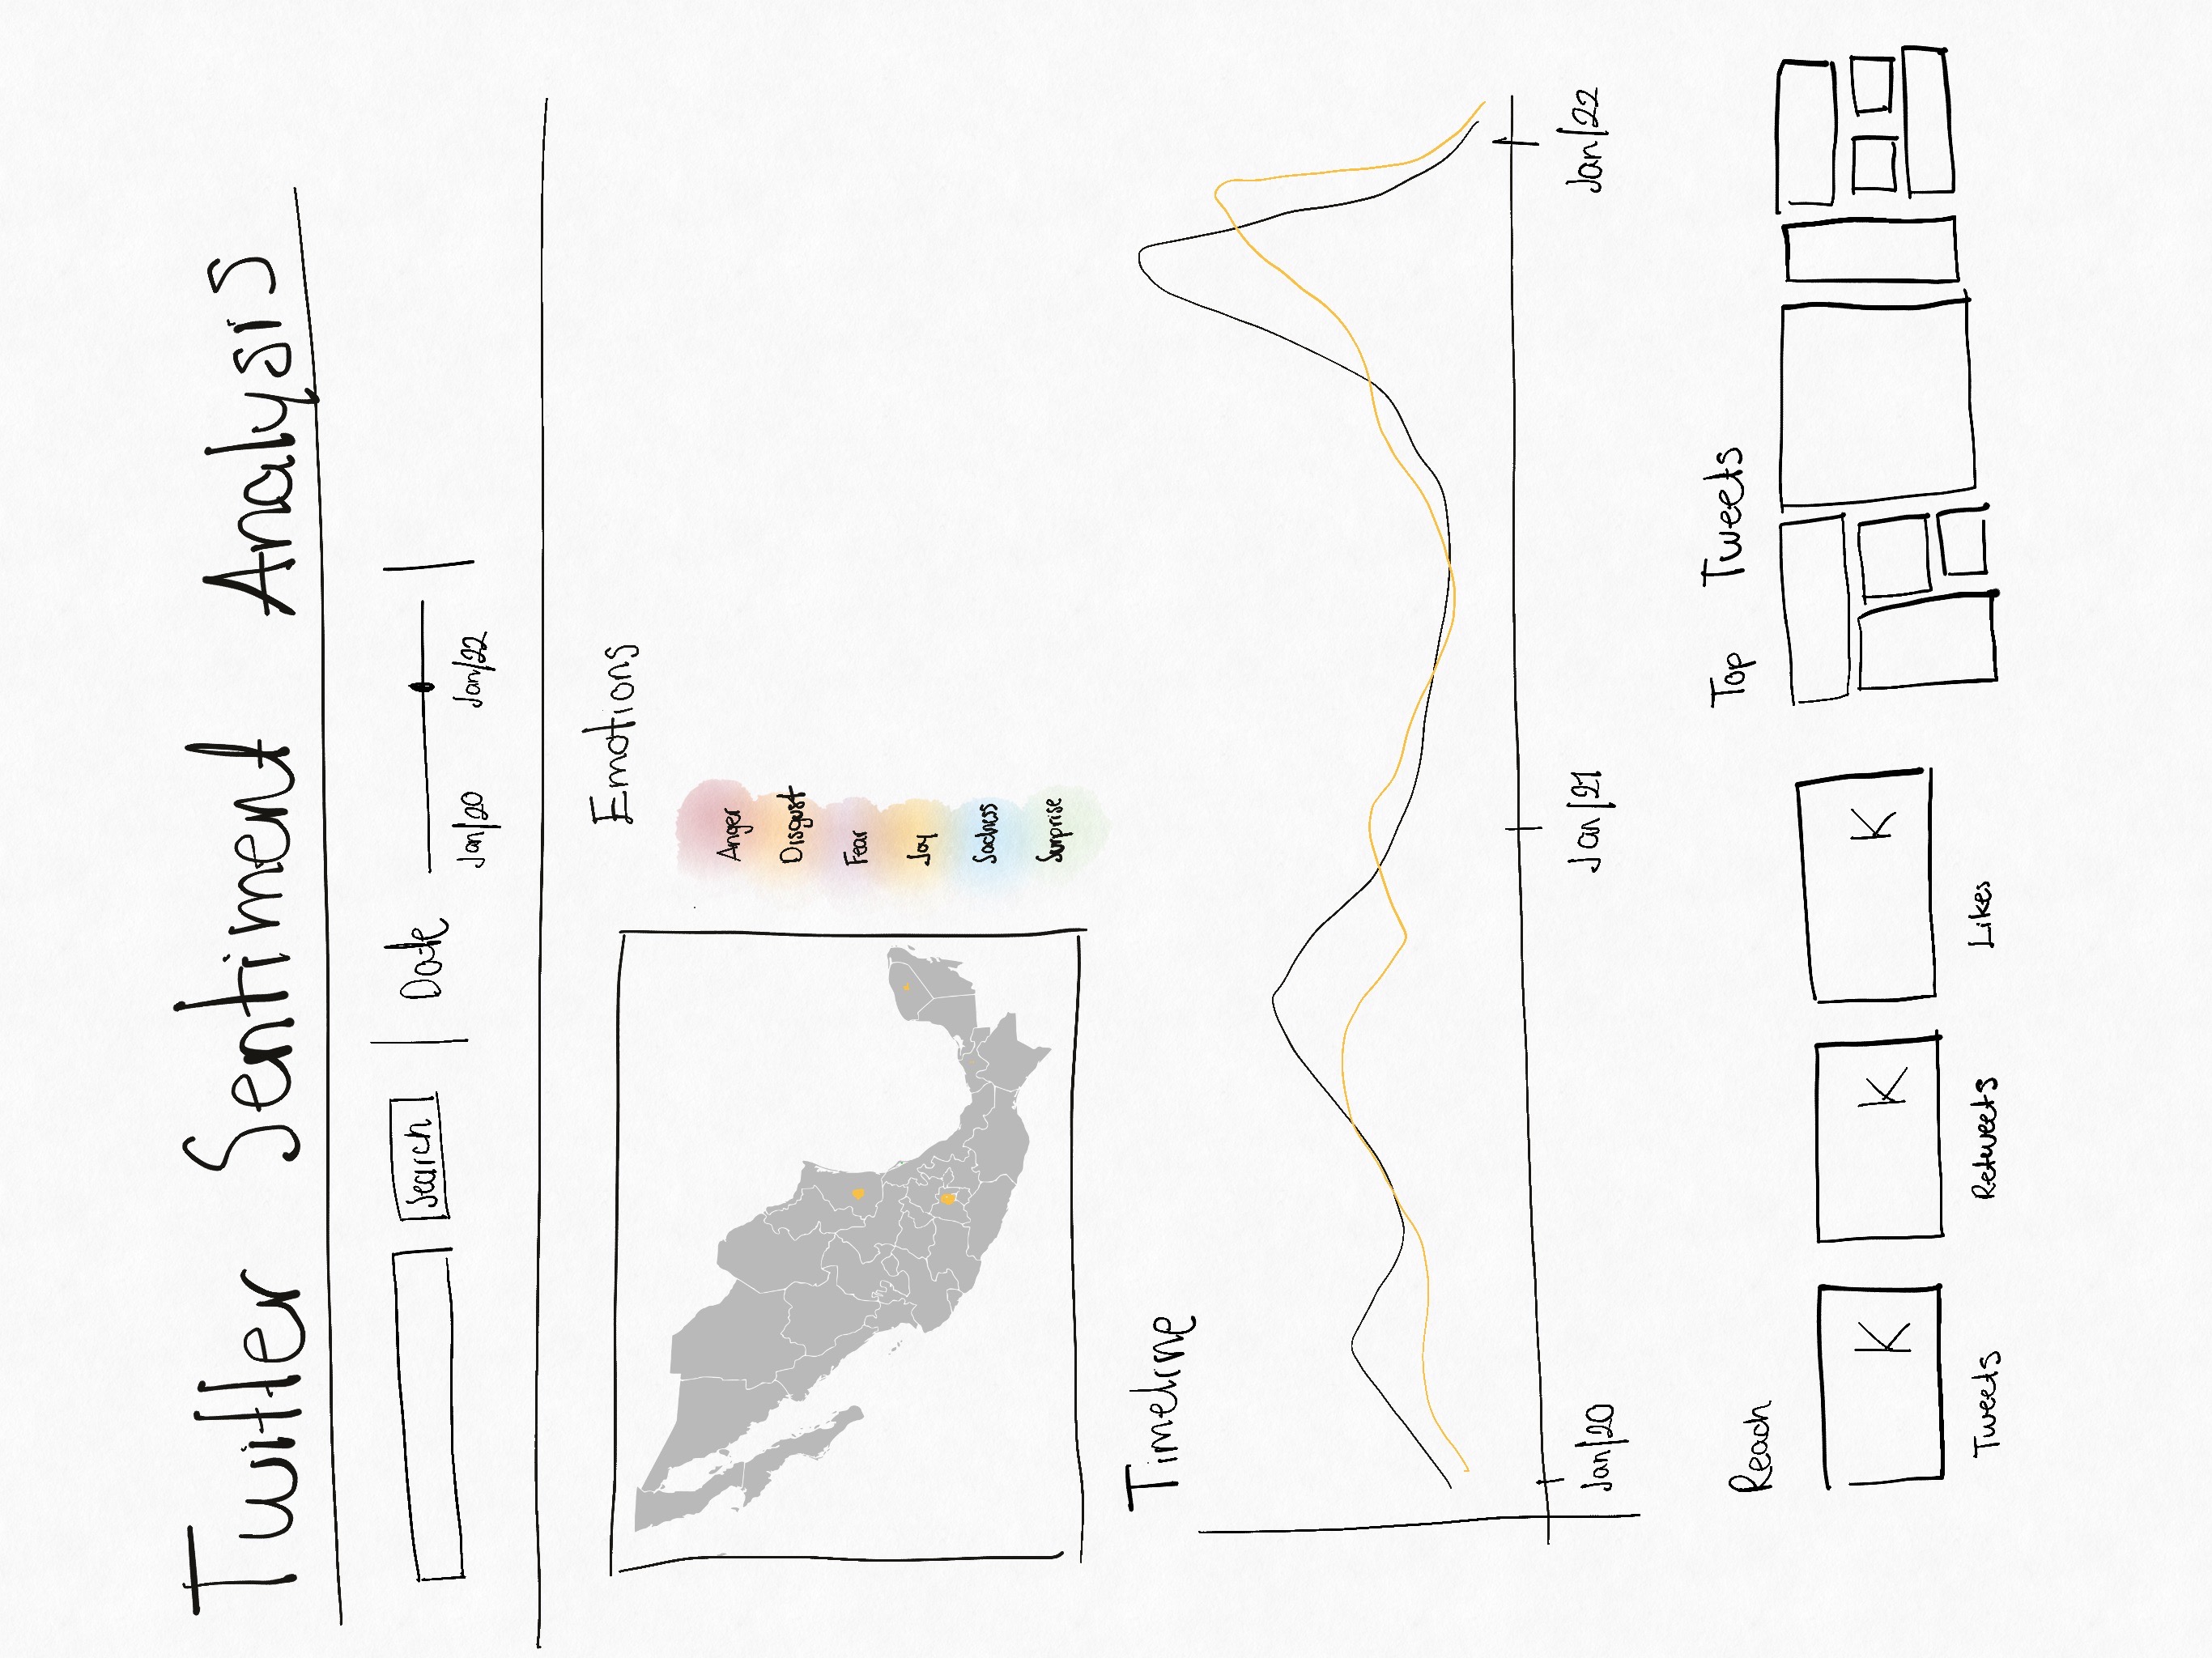 Twitter Sentiment Analysis
Search
Date
Jan/20
Jan/22
Emotions
Anger
Disgust
Fear
Joy
Sadness
Surprise
Timeline
Jan/20
Jan/21
Jan/22
Reach
Top Tweets
K
K
K
Tweets
Retweets
Likes